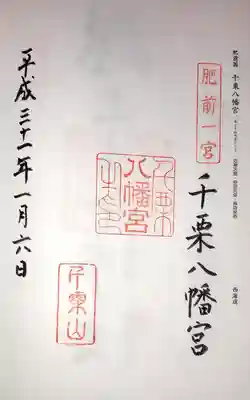 肥前國 千栗八幡宮
西海道
肥前一宮
千栗八幡宮
八幡宮
千栗山
平成三十一年一月六日